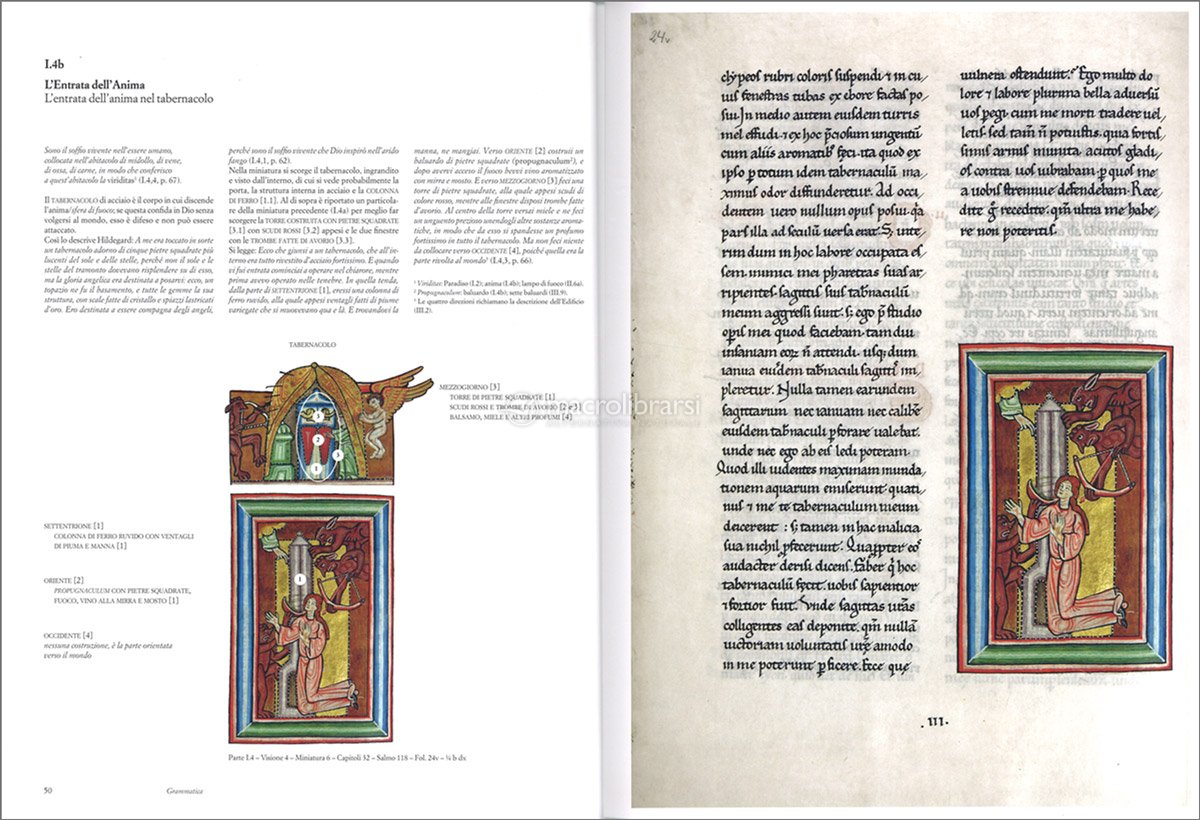 I.4b
L'Entrata dell'Anima
L'entrata dell'anima nel tabernacolo
Sono il soffio vivente nell'essere umano,
collocata nell'abitacolo di midollo, di vene,
di ossa, di carne, in modo che conferisco
a quest'abitacolo la viriditas¹ (I.4,4, p. 67).
Il TABERNACOLO di acciaio è il corpo in cui discende
l'anima/sfera di fuoco; se questa confida in Dio senza
volgersi al mondo, esso è difeso e non può essere
attaccato.
Così lo descrive Hildegard: A me era toccato in sorte
un tabernacolo adorno di cinque pietre squadrate più
lucenti del sole e delle stelle, perché non il sole e le
stelle del tramonto dovevano risplendere su di esso,
ma la gloria angelica era destinata a posarsi: ecco, un
topazio ne fu il basamento, e tutte le gemme la sua
struttura, con scale fatte di cristallo e spiazzi lastricati
d'oro. Ero destinata a essere compagna degli angeli,
perché sono il soffio vivente che Dio inspirò nell'arido
fango (I.4,1, p. 62).
Nella miniatura si scorge il tabernacolo, ingrandito
e visto dall'interno, di cui si vede probabilmente la
porta, la struttura interna in acciaio e la COLONNA
DI FERRO [1.1]. Al di sopra è riportato un particola-
re della miniatura precedente (I.4a) per meglio far
scorgere la TORRE COSTRUITA CON PIETRE SQUADRATE
[3.1] con SCUDI ROSSI [3.2] appesi e le due finestre
con le TROMBE FATTE DI AVORIO [3.3].
Si legge: Ecco che giunsi a un tabernacolo, che all'in-
terno era tutto rivestito d'acciaio fortissimo. E quando
vi fui entrata cominciai a operare nel chiarore, mentre
prima avevo operato nelle tenebre. In quella tenda,
dalla parte di SETTENTRIONE [1], eressi una colonna di
ferro ruvido, alla quale appesi ventagli fatti di piume
variegate che si muovevano qua e là. E trovandovi la
manna, ne mangiai. Verso ORIENTE [2] costruii un
baluardo di pietre squadrate (propugnaculum²), e
dopo averci acceso il fuoco bevvi vino aromatizzato
con mirra e mosto. E verso MEZZOGIORNO [3] feci una
torre di pietre squadrate, alla quale appesi scudi di
colore rosso, mentre alle finestre disposi trombe fatte
d'avorio. Al centro della torre versai miele e ne feci
un unguento prezioso unendogli altre sostanze aroma-
tiche, in modo che da esso si spandesse un profumo
fortissimo in tutto il tabernacolo. Ma non feci niente
da collocare verso OCCIDENTE [4], poiché quella era la
parte rivolta al mondo³ (I.4,3, p. 66).
¹ Viriditas: Paradiso (I.2); anima (I.4b); lampo di fuoco (II.6a).
² Propugnaculum: baluardo (I.4b); sette baluardi (III.9).
³ Le quattro direzioni richiamano la descrizione dell'Edificio
(III.2).
TABERNACOLO
MEZZOGIORNO [3]
TORRE DI PIETRE SQUADRATE [1]
SCUDI ROSSI E TROMBE DI AVORIO [2 e 3]
BALSAMO, MIELE E ALTRI PROFUMI [4]
macrolibrarsi
SETTENTRIONE [1]
COLONNA DI FERRO RUVIDO CON VENTAGLI
DI PIUMA E MANNA [1]
ORIENTE [2]
PROPUGNACULUM CON PIETRE SQUADRATE,
FUOCO, VINO ALLA MIRRA E MOSTO [1]
OCCIDENTE [4]
nessuna costruzione, è la parte orientata
verso il mondo
3
2
3
1
1
Parte I.4 – Visione 4 – Miniatura 6 – Capitoli 32 – Salmo 118 – Fol. 24v – ¼ b dx
50
Grammatica
24v
clypeos rubri coloris suspendi ⁊ in cu
ius fenestras tubas ex ebore factas po
sui. In medio autem eiusdem turris
mel effudi ⁊ ex hoc p̄ciosum ungentū
cum aliis aromatib; feci ita quod ex
ipso p totum idem tabernaculū ma
ximus odor diffunderetur. Ad occi
dentem uero nullum opus posui q̇a
pars illa ad seculū uersa erat. S; inte
rim dum in hoc labore occupata es
sem inimici mei pharetras suas ar
ripientes sagittis suis tab̄naculū
meum aggressi sunt. s; ego p̄ studio
opis mei quod faciebam tam diu
insaniam eoꝝ n̄ attendi usq; dum
ianua eiusdem tab̄naculi sagittis im
pleretur. Nulla tamen earundem
sagittarum nec ianuam nec calibē
eiusdem tab̄naculi pforare ualebat.
unde nec ego ab eis ledi poteram.
Quod illi uidentes maximam munda
tionem aquarum emiserunt quati
nus ⁊ me ⁊ tabernaculum meum
deicerent: s; tamen in hac malicia
sua nichil pfecerunt. Quapp̄ter eos
audacter derisi dicens. Faber q̇ hoc
tabernaculū fecit. uobis sapientior
⁊ fortior fuit. Unde sagittas ur̄as
colligentes eas deponite. qm̄ nullā
uictoriam uoluntatis ur̄e amodo
in me poterunt pficere. Ecce que
uulnera ostendunt. Ego multo do
lore ⁊ labore plurima bella aduersū
uos pegi cum me morti tradere uel
letis. sed tam̄ n̄ potuistis. quia fortis
simis armis munita acutos gladi
os contra uos uibrabam. p quos me
a uobis strennue defendebam. Rece
dite g̊ recedite. qm̄ ultra me habe
re non poteritis.
.III.